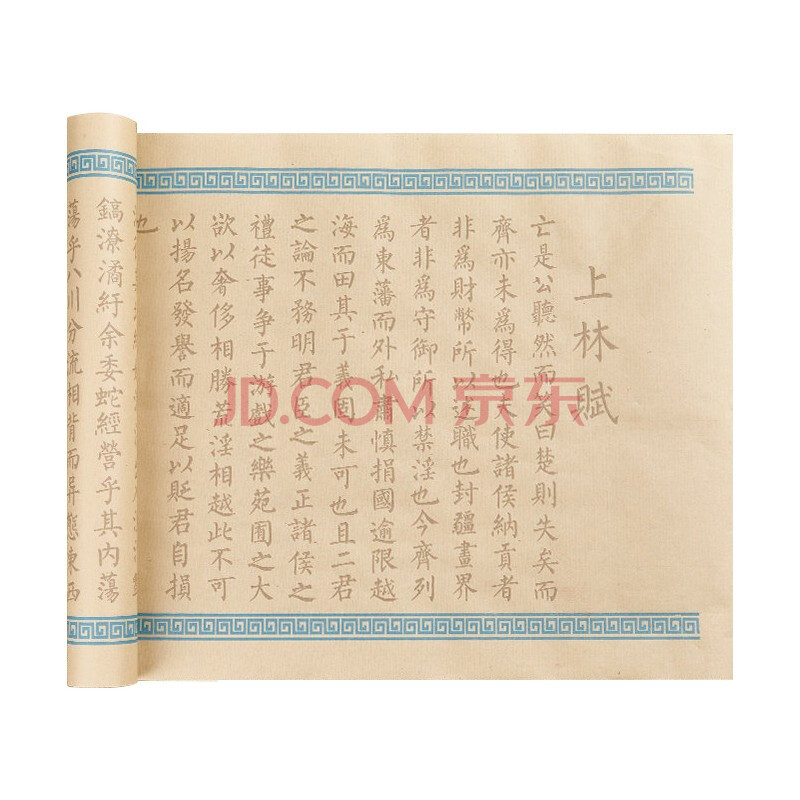 上林賦
亡是公聽然而笑曰楚則失矣而
齊亦未爲得也夫使諸侯納貢者
非爲財幣所以述職也封疆畫界
者非爲守御所以禁淫也今齊列
爲東藩而外私肅慎捐國逾限越
海而田其于義固未可也且二君
之論不務明君臣之義正諸侯之
禮徒事爭于游戲之樂苑囿之大
欲以奢侈相勝荒淫相越此不可
以揚名發譽而適足以貶君自損
也
鎬潦潏紆余委蛇經營乎其內蕩
蕩乎八川分流相背而异態東西
JD.COM 京东